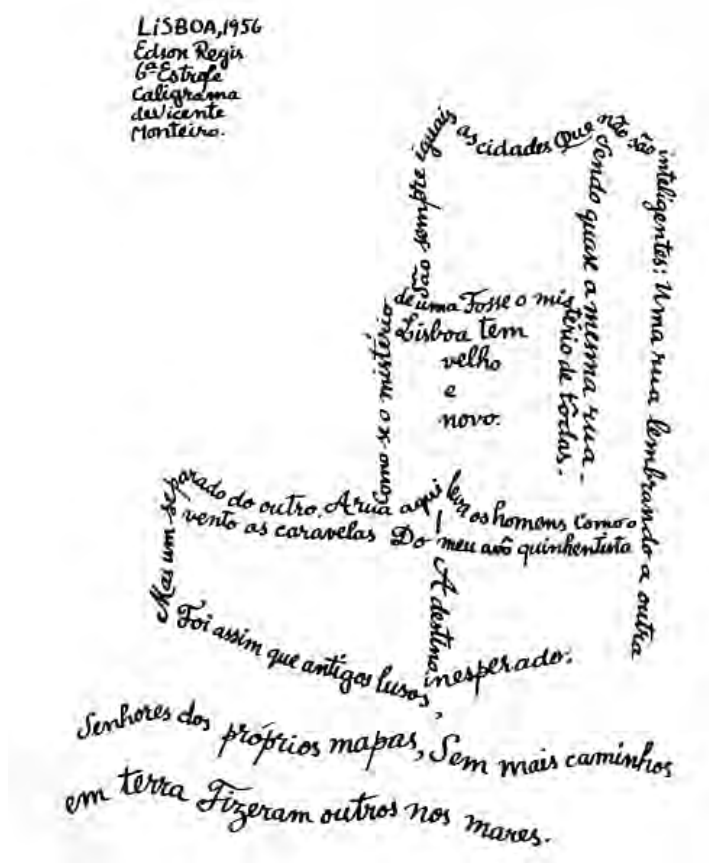 LiSBOA,1956
Edson Regis
6ª Estrofe
Caligrama
de Vicente
Monteiro.
São sempre iguais as cidades Que não são inteligentes: Uma rua lembrando a outra
Sendo quase a mesma rua-
Como se o mistério de uma Fosse o mistério de tôdas.
Lisboa tem
velho
e
novo.
Mas um separado do outro. A rua aqui leva os homens como o
vento as caravelas Do meu avô quinhentista
A destino inesperado:
Foi assim que antigos lusos,
Senhores dos próprios mapas, Sem mais caminhos
em terra Fizeram outros nos mares.